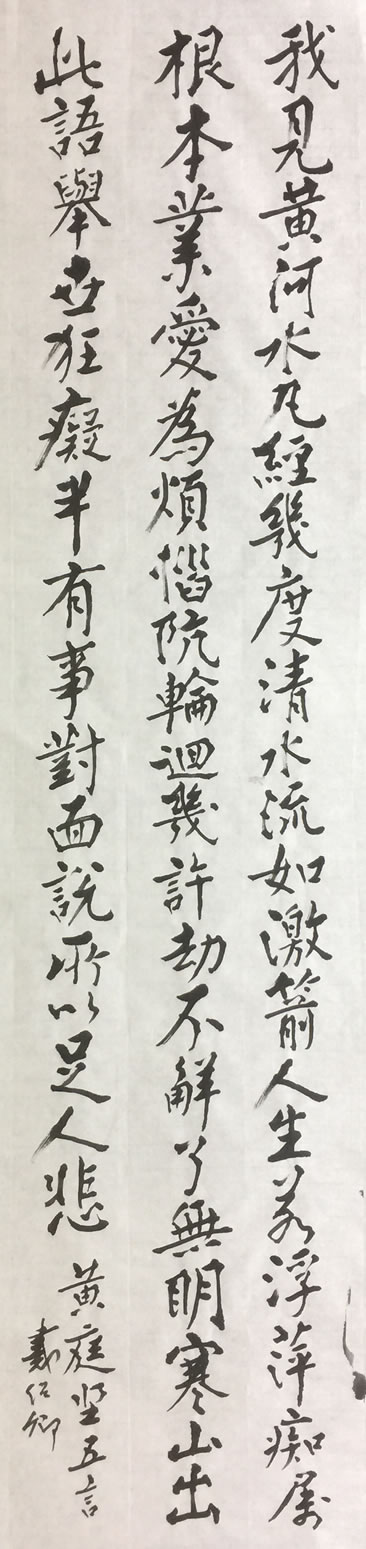 我見黃河水凡經幾度清水流如激箭人生若浮萍痴属
根本業愛為煩惱阬輪迴幾許劫不解了無明寒山出
此語舉世狂癡半有事對面說所以足人悲
黃庭坚五言
戴紹卿